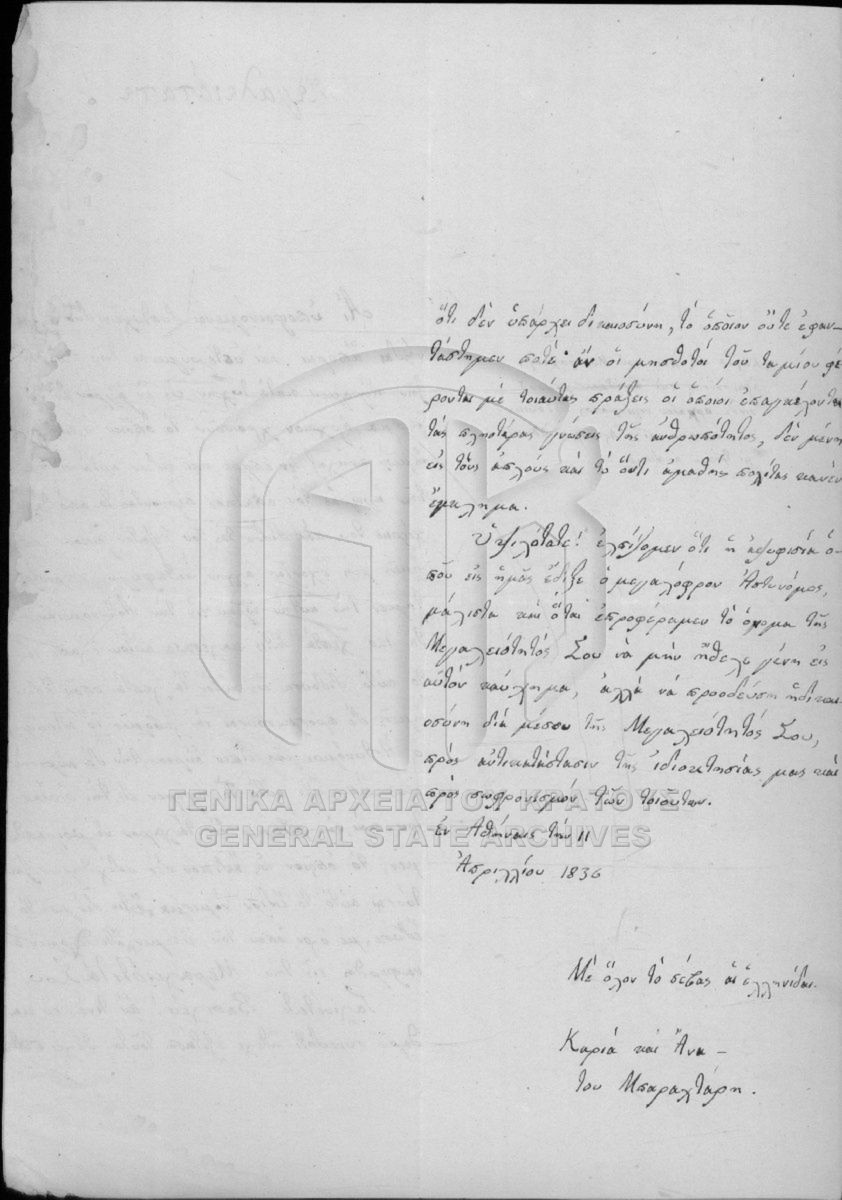 ὅτι δὲν ὑπάρχει δικαιοσύνη, τὸ ὁποῖον οὔτε ἐφαν-
τάσθημεν ποτέ· ἂν οἱ μησθοτοὶ τοῦ ταμίου φέ
ρονται μὲ τοιαύτας πράξεις οἱ ὁποῖοι ἐπαγκέλονται
τὰς πλησ
τάρας γνώσεις τῆς ἀνθρωπότητος, δὲν μένη
εἰς τοὺς ἁπλοὺς καὶ τὸ ὄντι ἀμαθῆς πολίτας κανέν
ἔγκλημα.
Ὑψιλότατε! ἐλπίζομεν ὅτι ἡ ἀξιοφισιὰ ὁ-
ποῦ εἰς ἡμᾶς ἔδιξε ὁ μεγαλόφρον Ἀστυνόμος,
μάλιστα καὶ ὅταν ἐπροφέραμεν τὸ ὄνομα τῆς
Μεγαλειότητός Σου νὰ μὴν ἤθελε γένη εἰς
αὐτὸν καύχημα, ἀλλὰ νὰ προοδεύση ἡ δικαι
οσύνη διὰ μέσου τῆς Μεγαλειότητός Σου,
πρὸς ἀντικατάστασιν τῆς ἰδιοκτησίας μας καὶ
πρὸς σωφρονισμὸν τῶν τοιούτων.
ἐν Ἀθήναις τὴν 11
Ἀπριλλίου 1836
Μὲ ὅλον τὸ σέβας αἱ ἑλληνίδαι.
Καριὰ καὶ Ἄνα -
του Μπαραχτάρη.
ΓΕΝΙΚΑ ΑΡΧΕΙΑ ΤΟΥ ΚΡΑΤΟΥΣ
GENERAL STATE ARCHIVES